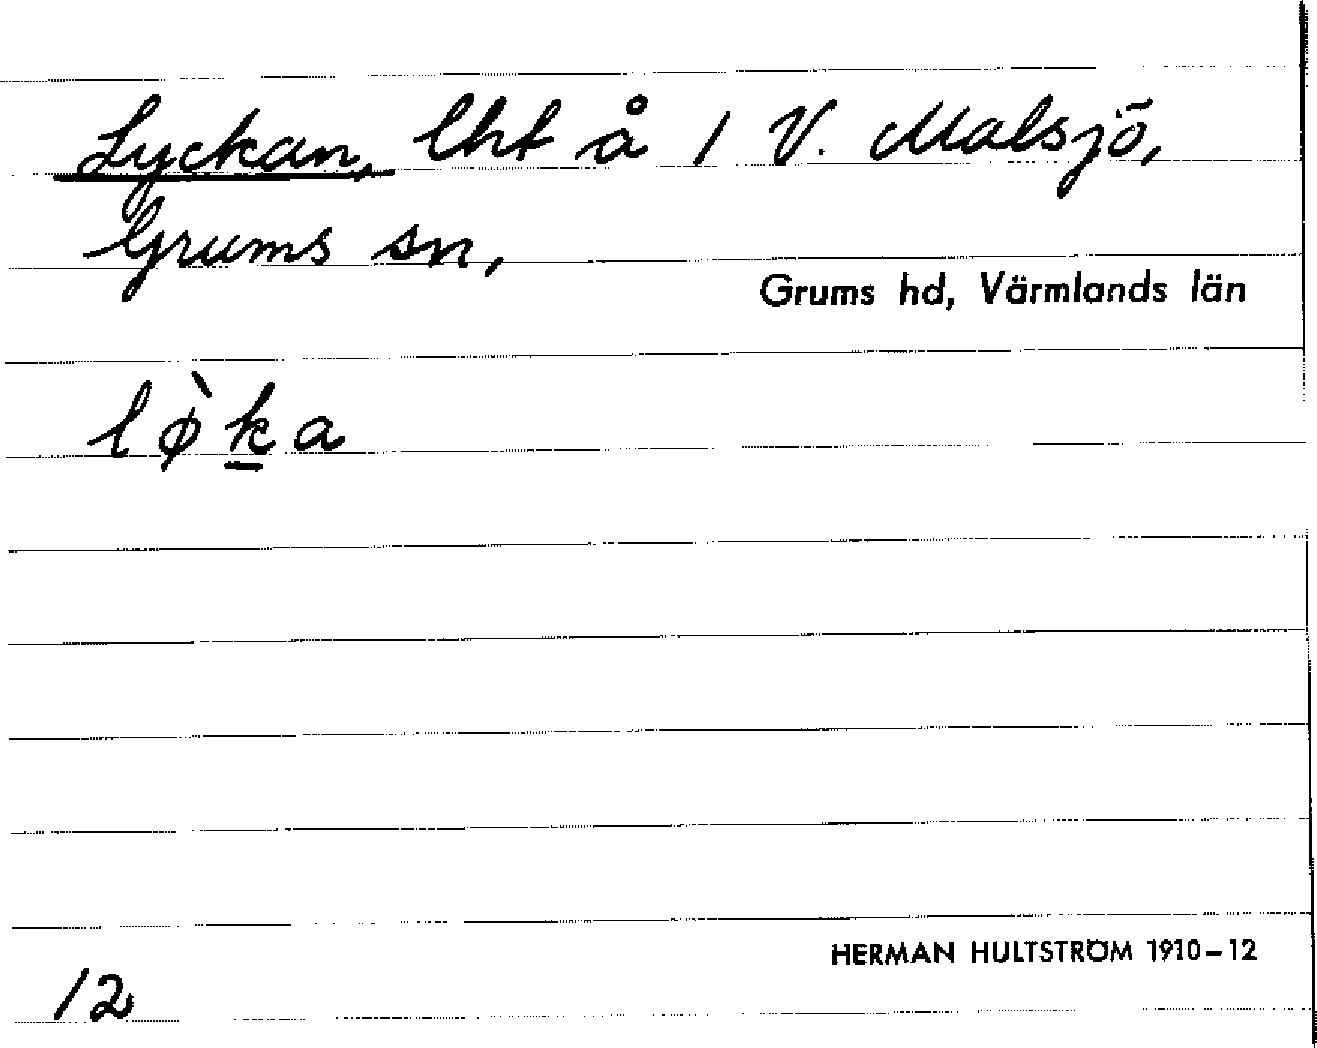 Lyckan, lht å 1 V. Malsjö,
Grums sn,
Grums hd, Värmlands län
lø̀k̲a
HERMAN HULTSTRÖM 1910–12
12